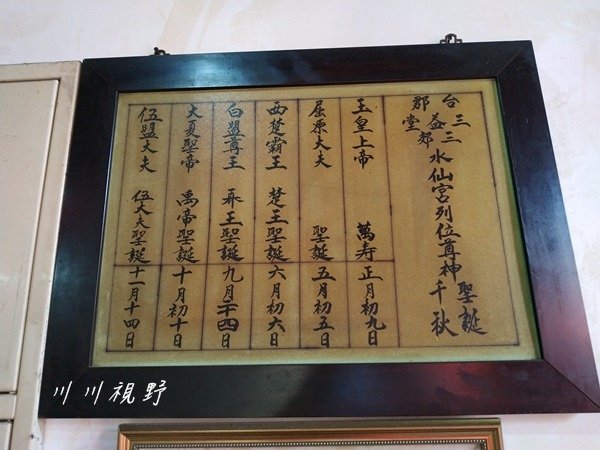 台郡三益堂三郊水仙宮列位尊神聖誕千秋
玉皇上帝 萬寿 正月初九日
屈原大夫 聖誕 五月初五日
西楚霸王 楚王聖誕 六月初六日
白盟尊王 王聖誕 九月二十四日
大夏聖帝 禹帝聖誕 十月初十日
伍盟大夫 伍大夫聖誕 十一月十四日
川川視野